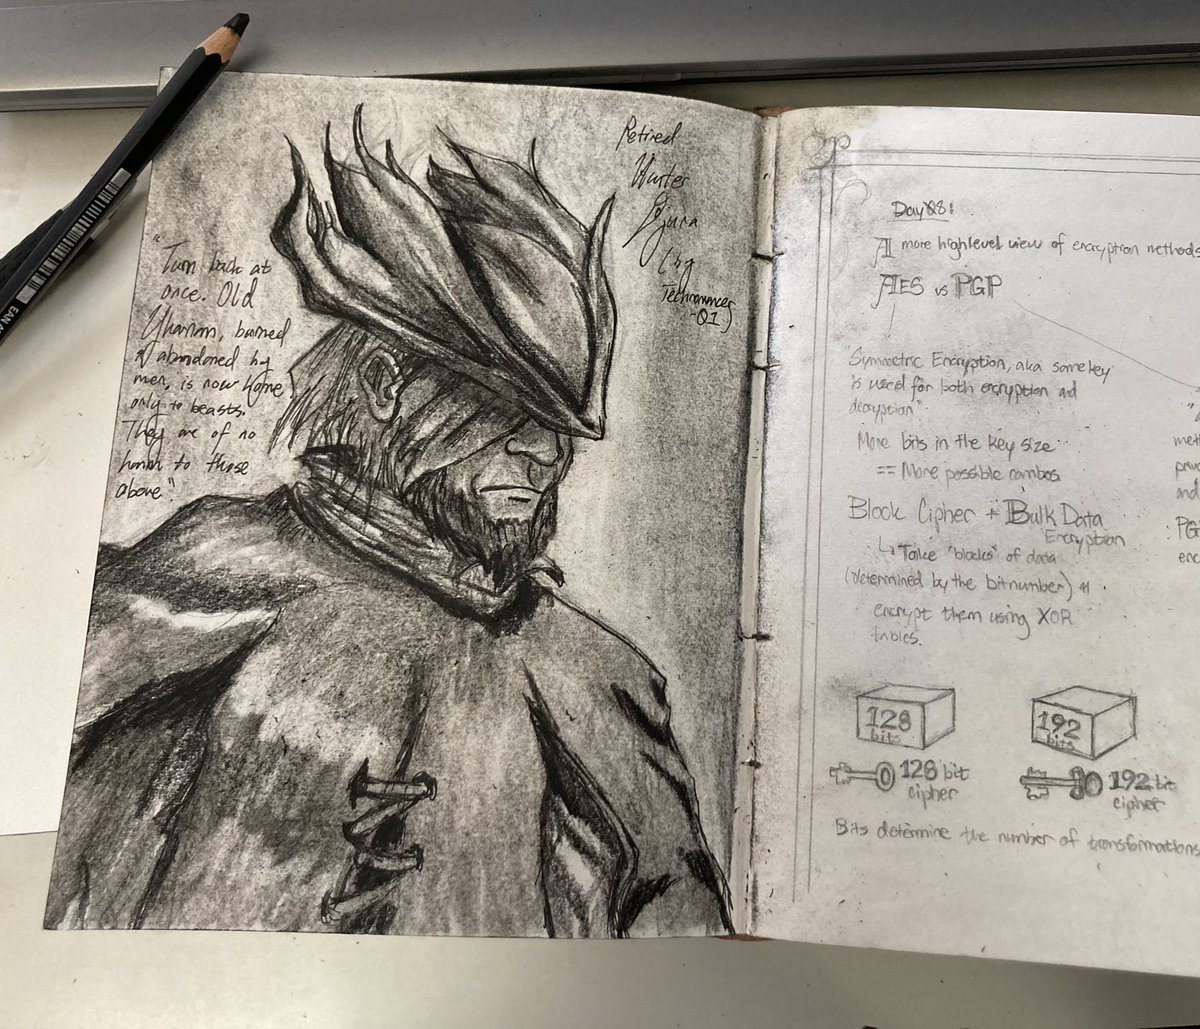 "Turn back at
once. Old
Yharnam, burned
& abandoned by
men, is now home
only to beasts.
They are of no
harm to those
above."
Retired
Hunter
Djura
(by
Technomancer
-01)
Day 98:
A more high level view of encryption methods
AES vs PGP
"Symmetric Encryption, aka same key
is used for both encryption and
decryption".
More bits in the key size
== More possible combos
Block Cipher + Bulk Data
Encryption
↳ Take "blocks" of data
(determined by the bit number) &
encrypt them using XOR
tables.
128
bits
192
bits
128 bit
cipher
192 bit
cipher
Bits determine the number of transformations
"
met
priv
and
PG
enc
EAN